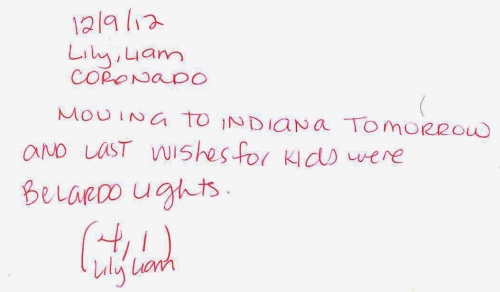 12/9/12
Lily, Liam
CORONADO
MOVING TO INDIANA TOMORROW
AND LAST WISHES for KIDS WERE
BELARDO LIGHTS.
(4, 1)
Lily Liam